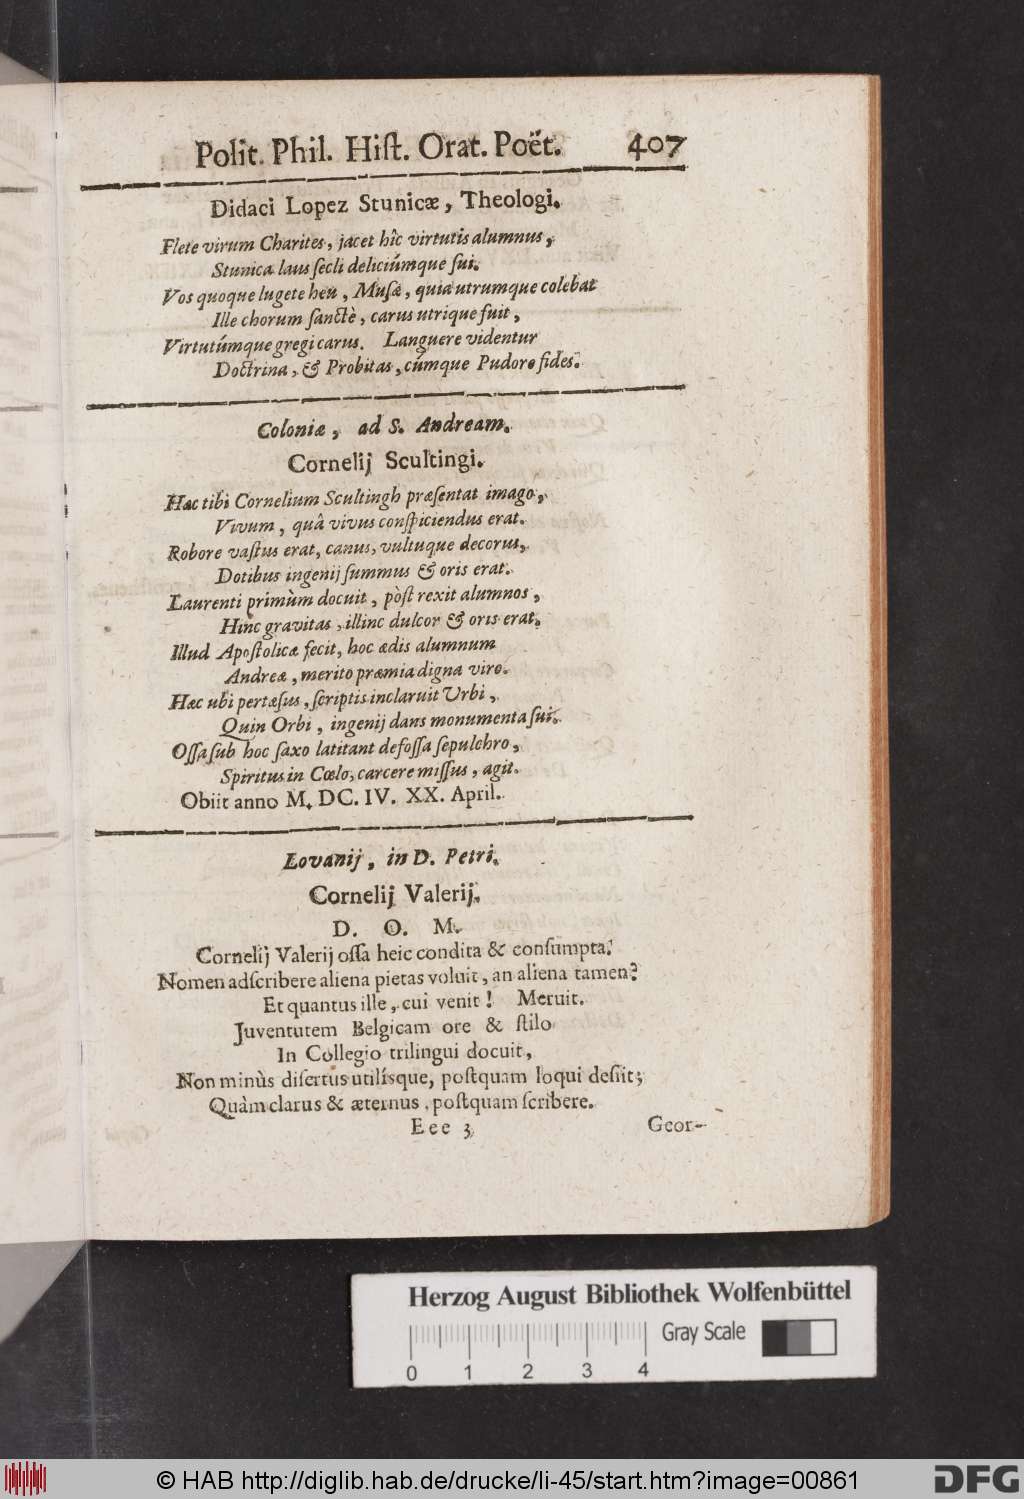 Polit. Phil. Hiſt. Orat. Poët. 407
Didaci Lopez Stunicæ, Theologi.
Flete virum Charites, jacet hîc virtutis alumnus,
Stunica laus ſecli deliciúmque ſui.
Vos quoque lugete heu, Muſæ, quia utrumque colebat
Ille chorum ſanctè, carus utrique fuit,
Virtutúmque gregi carus. Languere videntur
Doctrina, & Probitas, cúmque Pudore fides.
Coloniæ, ad S. Andream.
Cornelij Scultingi.
Hac tibi Cornelium Scultingh præſentat imago,
Vivum, quâ vivus conſpiciendus erat.
Robore vaſtus erat, canus, vultuque decorus,
Dotibus ingenij ſummus & oris erat.
Laurenti primùm docuit, pòſt rexit alumnos,
Hinc gravitas, illinc dulcor & oris erat.
Illud Apoſtolicæ fecit, hoc ædis alumnum
Andreæ, merito præmia digna viro.
Hæc ubi pertæſus, ſcriptis inclaruit Urbi,
Quin Orbi, ingenij dans monumenta ſui.
Oſſa ſub hoc ſaxo latitant defoſſa ſepulchro,
Spiritus in Cœlo, carcere miſſus, agit.
Obiit anno M. DC. IV. XX. April.
Lovanij, in D. Petri.
Cornelij Valerij.
D. O. M.
Cornelij Valerij oſſa heic condita & conſumpta.
Nomen adſcribere aliena pietas voluit, an aliena tamen?
Et quantus ille, cui venit! Meruit.
Juventutem Belgicam ore & ſtilo
In Collegio trilingui docuit,
Non minùs diſertus utilíſque, poſtquam loqui deſiit;
Quàm clarus & æternus, poſtquam ſcribere.
Eee 3 Geor-
Herzog August Bibliothek Wolfenbüttel
Gray Scale
0 1 2 3 4
© HAB http://diglib.hab.de/drucke/li-45/start.htm?image=00861
DFG